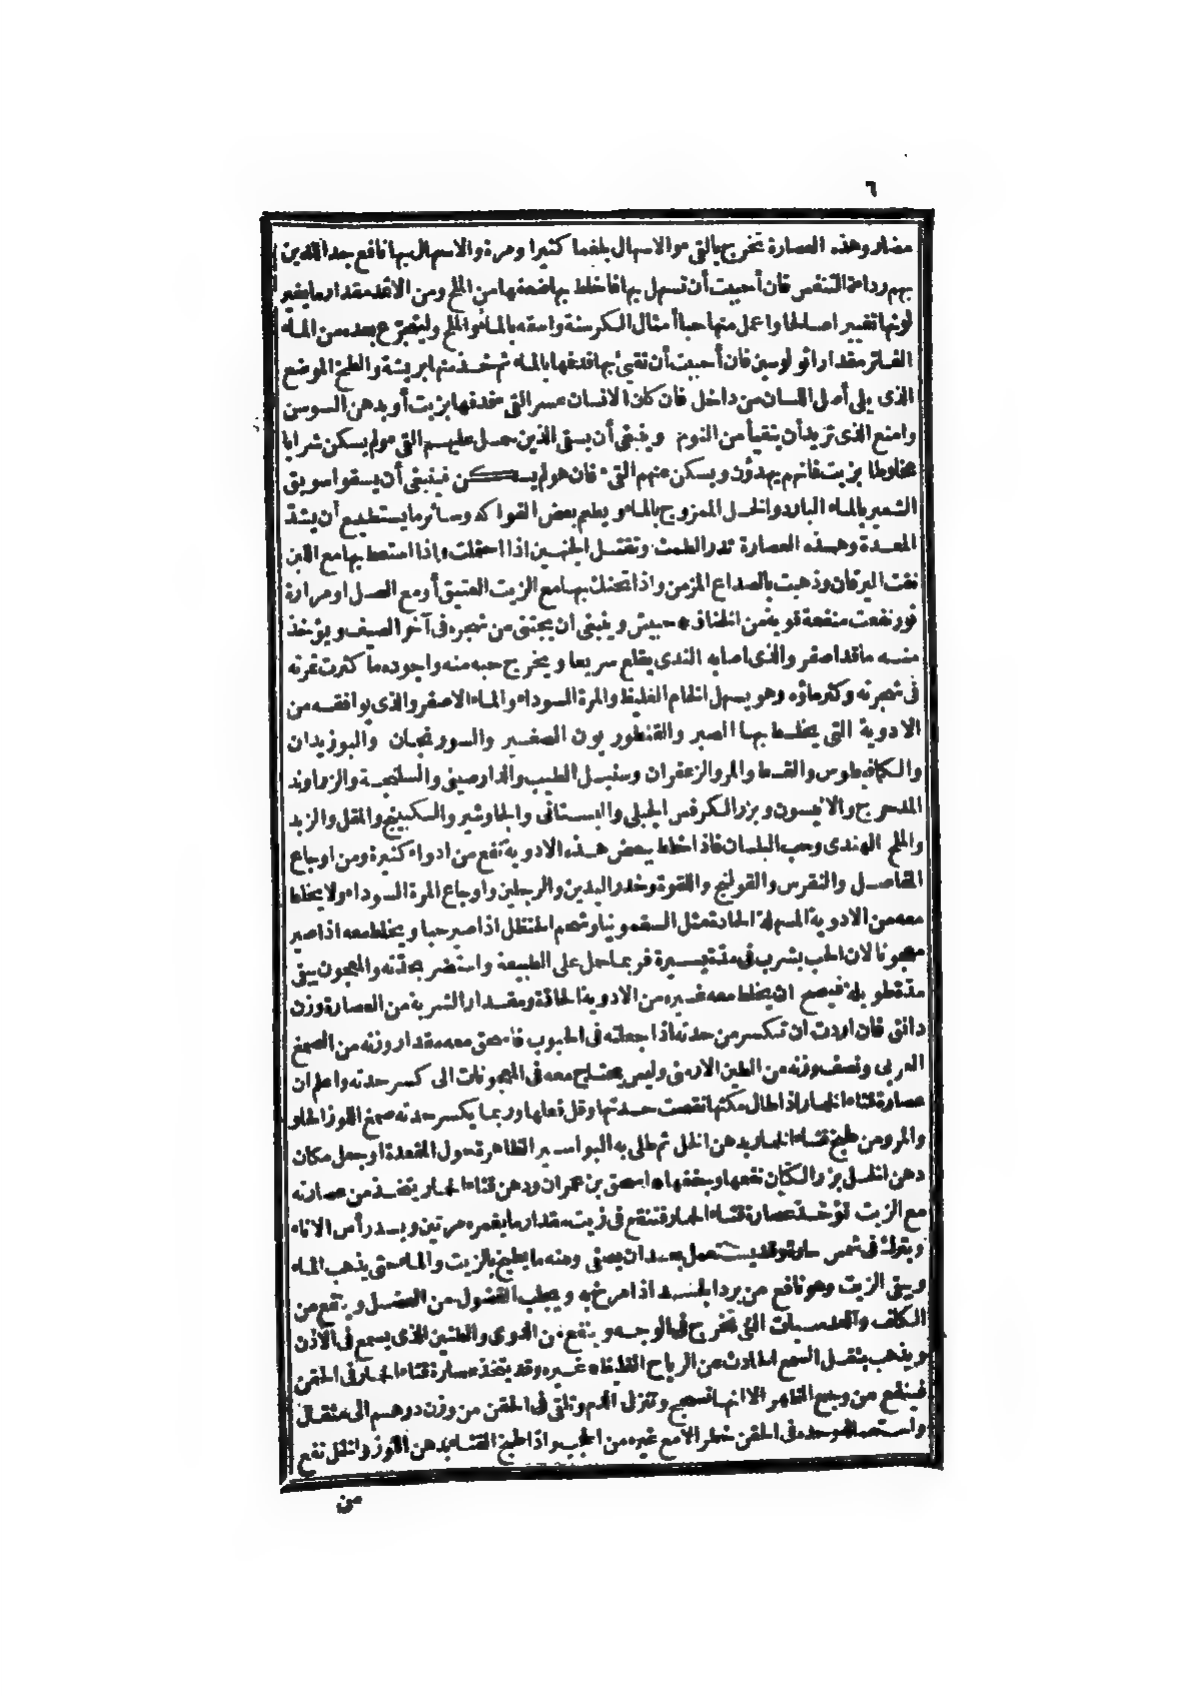 ٦
مضار وهذه العصارة تخرج بالقىء والاسهال بلغما كثيرا ومرة والاسهال بها نافع جدا للذين
بهم رداءة التنفس فان أحببت أن تسهل بها فاخلط بها ضعفها من الملح ومن الاثمد مقدار ما يغير
لونها تغيير اصالحا واعمل منها حبا أمثال الكرسنة واسقه بالماء والملح وليتجرع بعده من الماء
الفاتر مقدار اثولوسين فان أحببت أن تقيئ بها فدفها بالماء ثم خذ منها بريشة والطخ الموضع
الذى يلى أصل اللسان من داخل فان كان الانسان عسر القىء فدفها بزيت أو بدهن السوسن
وامنع الذى تريد أن يتقيأ من النوم وينبغى أن يسقى الذين حمل عليهم القىء ولم يسكن شرابا
مخلوطا بزيت فانهم يهدؤن ويسكن عنهم القىء فان هو لم يسكن فينبغى أن يسقوا سويق
الشعير بالماء البارد والخل الممزوج بالماء ويطعم بعض الفواكه وسائر ما يستطيع أن يشد
المعدة وهذه العصارة تدر الطمث وتقتل الجنين اذا احتملت واذا استعط بها مع اللبن
نقت اليرقان وذهبت بالصداع المزمن واذا تحنك بها مع الزيت العتيق أو مع العسل او مرارة
ثور نفعت منفعة قوية من الخناق * حبيش وينبغى ان يجتنى من شجره فى آخر الصيف ويؤخذ
منه ما قد اصفر والذى اصابه الندى يقلع سريعا ويخرج حبه منه واجوده ما كثرت ثمرته
فى شجرته وكثر ماؤه وهو يسهل الخام الغليظ والمرة السوداء والماء الاصفر والذى يوافقه من
الادوية التى يخلط بها الصبر والقنطوريون الصغير والسورنجان والبوزيدان
والكمافيطوس والقسط والمر والزعفران وسنبل الطيب والدارصينى والسليخة والزراوند
المدحرج والانيسون وبزر الكرفس الجبلى والبستانى والجاوشير والسكبينج والمقل والزبد
والملح الهندى وحب البلسان فاذا خلط ببعض هذه الادوية نفع من ادواء كثيرة ومن اوجاع
المفاصل والنقرس والقولنج واللقوة وخدر اليدين والرجلين واوجاع المرة السوداء ولا يخلط
معه من الادوية المسهلة الحادة مثل السقمونيا وشحم الحنظل اذا صير حبا ويخلط معه اذا صير
معجونا لان الحب يشرب فى مدة يسيرة فربما حمل على الطبيعة واستضر بحدته والمعجون يبقى
مدة طويلة فيصح ان يخلط معه غيره من الادوية الحادة ومقدار الشربة من العصارة وزن
دانق فان اردت ان تكسر من حدته اذا جعلته فى الحبوب فاسحق معه مقدار وزنه من الصمغ
العربى ونصف وزنه من الطين الارمنى وليس يحتاج معه فى المعجونات الى كسر حدته واعلم ان
عصارة قثاء الحمار اذا طال مكثها نقصت حدتها وقل فعلها وربما يكسر حدته صمغ اللوز الحلو
والمر ومن طبخ قثاء الحمار بدهن الخل ثم طلى به البواسير الظاهرة حول المقعدة او جعل مكان
دهن الخل بزر الكتان نفعها وجففها * اسحق بن عمران ودهن قثاء الحمار يتخذ من عصارته
مع الزيت تؤخذ عصارة قثاء الحمار فتنقع فى زيت مقدار ما يغمره مرتين ويسد رأس الاناء
ويترك فى شمس حارة وقد يستعمل بعد ان يصفى ومنه ما يطبخ بالزيت والماء حتى يذهب الماء
ويبقى الزيت وهو نافع من برد الجسد اذا مرخ به ويجلب الفضول من العضل وينفع من
الكلف والعدسيات التى تخرج فى الوجه وينفع من الدوى والطنين الذى يسمع فى الاذن
ويذهب بثقل السمع الحادث عن الرياح الغليظة * غيره وقد يتخذ عصارة قثاء الحمار فى الحقن
فينفع من وجع الظهر الا انها تسحج وتنزل الدم وتلقى فى الحقن من وزن درهم الى مثقال
واستعماله وحده فى الحقن خطر الا مع غيره من الحب واذا طبخ القثاء بدهن اللوز والخل نفع
من